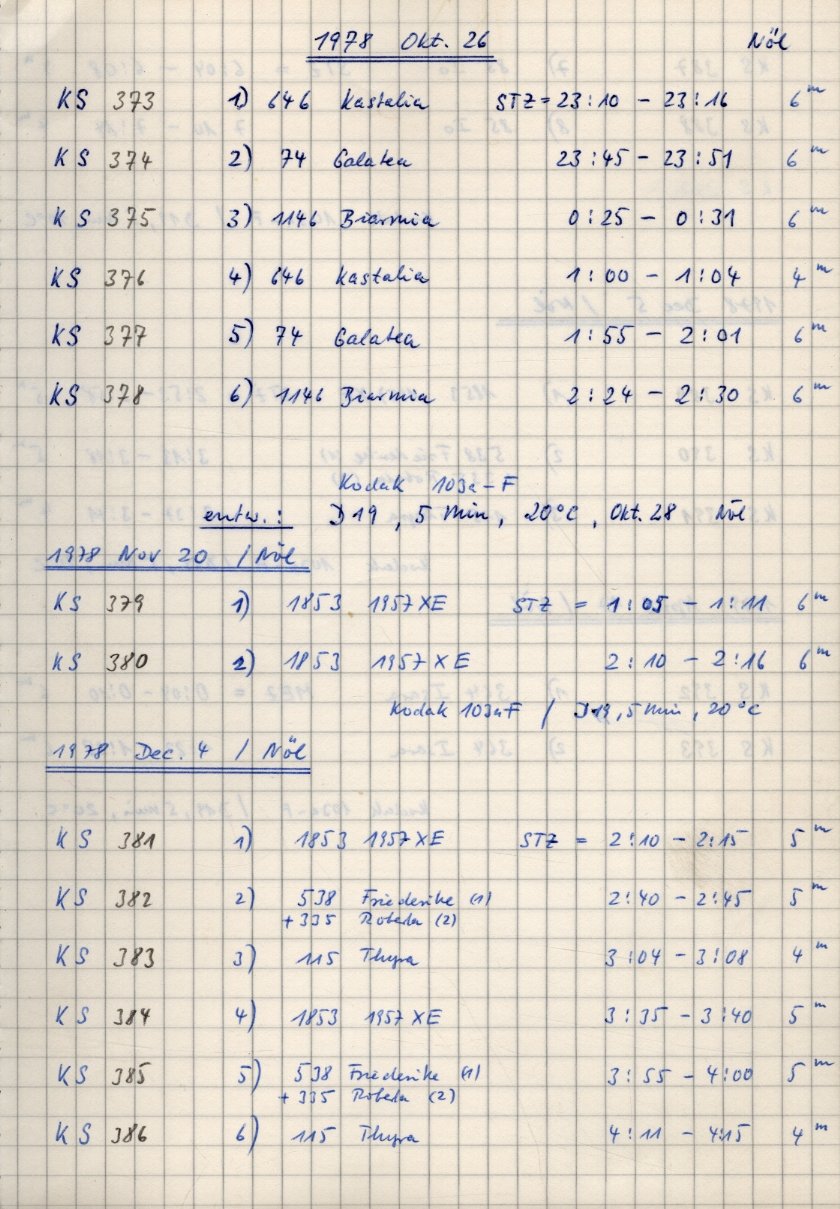 1978 Okt. 26 Nöl
KS 373 1) 646 Kastalia STZ = 23:10 – 23:16 6ᵐ
KS 374 2) 74 Galatea 23:45 – 23:51 6ᵐ
KS 375 3) 1146 Biarmia 0:25 – 0:31 6ᵐ
KS 376 4) 646 Kastalia 1:00 – 1:04 4ᵐ
KS 377 5) 74 Galatea 1:55 – 2:01 6ᵐ
KS 378 6) 1146 Biarmia 2:24 – 2:30 6ᵐ
Kodak 103a–F
entw.: D19, 5 Min, 20°C, Okt. 28 Nöl
1978 Nov 20 / Nöl
KS 379 1) 1853 1957 XE STZ = 1:05 – 1:11 6ᵐ
KS 380 2) 1853 1957 XE 2:10 – 2:16 6ᵐ
Kodak 103aF / D19, 5 min, 20°C
1978 Dec. 4 / Nöl
KS 381 1) 1853 1957 XE STZ = 2:10 – 2:15 5ᵐ
KS 382 2) 538 Friederike (1) 2:40 – 2:45 5ᵐ
+ 335 Roberta (2)
KS 383 3) 115 Thyra 3:04 – 3:08 4ᵐ
KS 384 4) 1853 1957 XE 3:35 – 3:40 5ᵐ
KS 385 5) 538 Friederike (1) 3:55 – 4:00 5ᵐ
+ 335 Roberta (2)
KS 386 6) 115 Thyra 4:11 – 4:15 4ᵐ